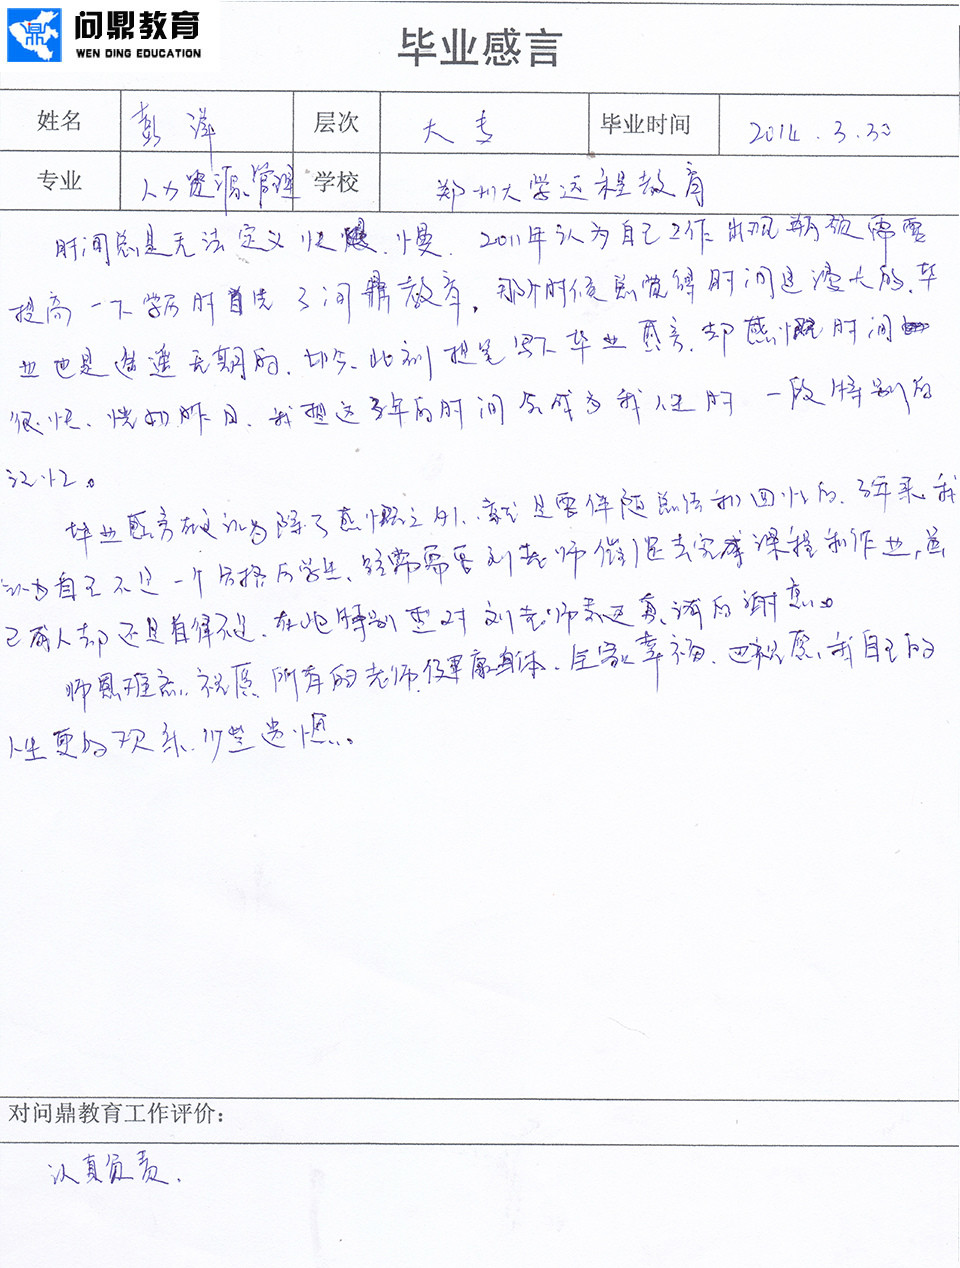 问鼎教育
WEN DING EDUCATION
毕业感言
姓名 彭洋 层次 大专 毕业时间 2014.3.30
专业 人力资源管理 学校 郑州大学远程教育
时间总是无法定义快慢. 2011年认为自己工作出现瓶颈需要
提高一下学历时首选了问鼎教育, 那个时候总觉得时间是漫长的, 毕
业也是遥遥无期的. 如今此刻提笔写下毕业感言, 却感慨时间
很快, 恍如昨日, 我想这3年的时间会成为我人生时一段特别的
记忆。
毕业感言在我认为除了感慨之外, 就是要伴随总结和回忆的, 3年来我
认为自己不是一个合格的学生, 经常需要刘老师催促去完成课程和作业,
己成人却还是自律不足, 在此特别要对刘老师表达真诚的谢意。
师恩难忘, 祝愿所有的老师健康身体, 全家幸福, 也祝愿我自己的
人生更多欢乐, 少些遗憾。
对问鼎教育工作评价：
认真负责.